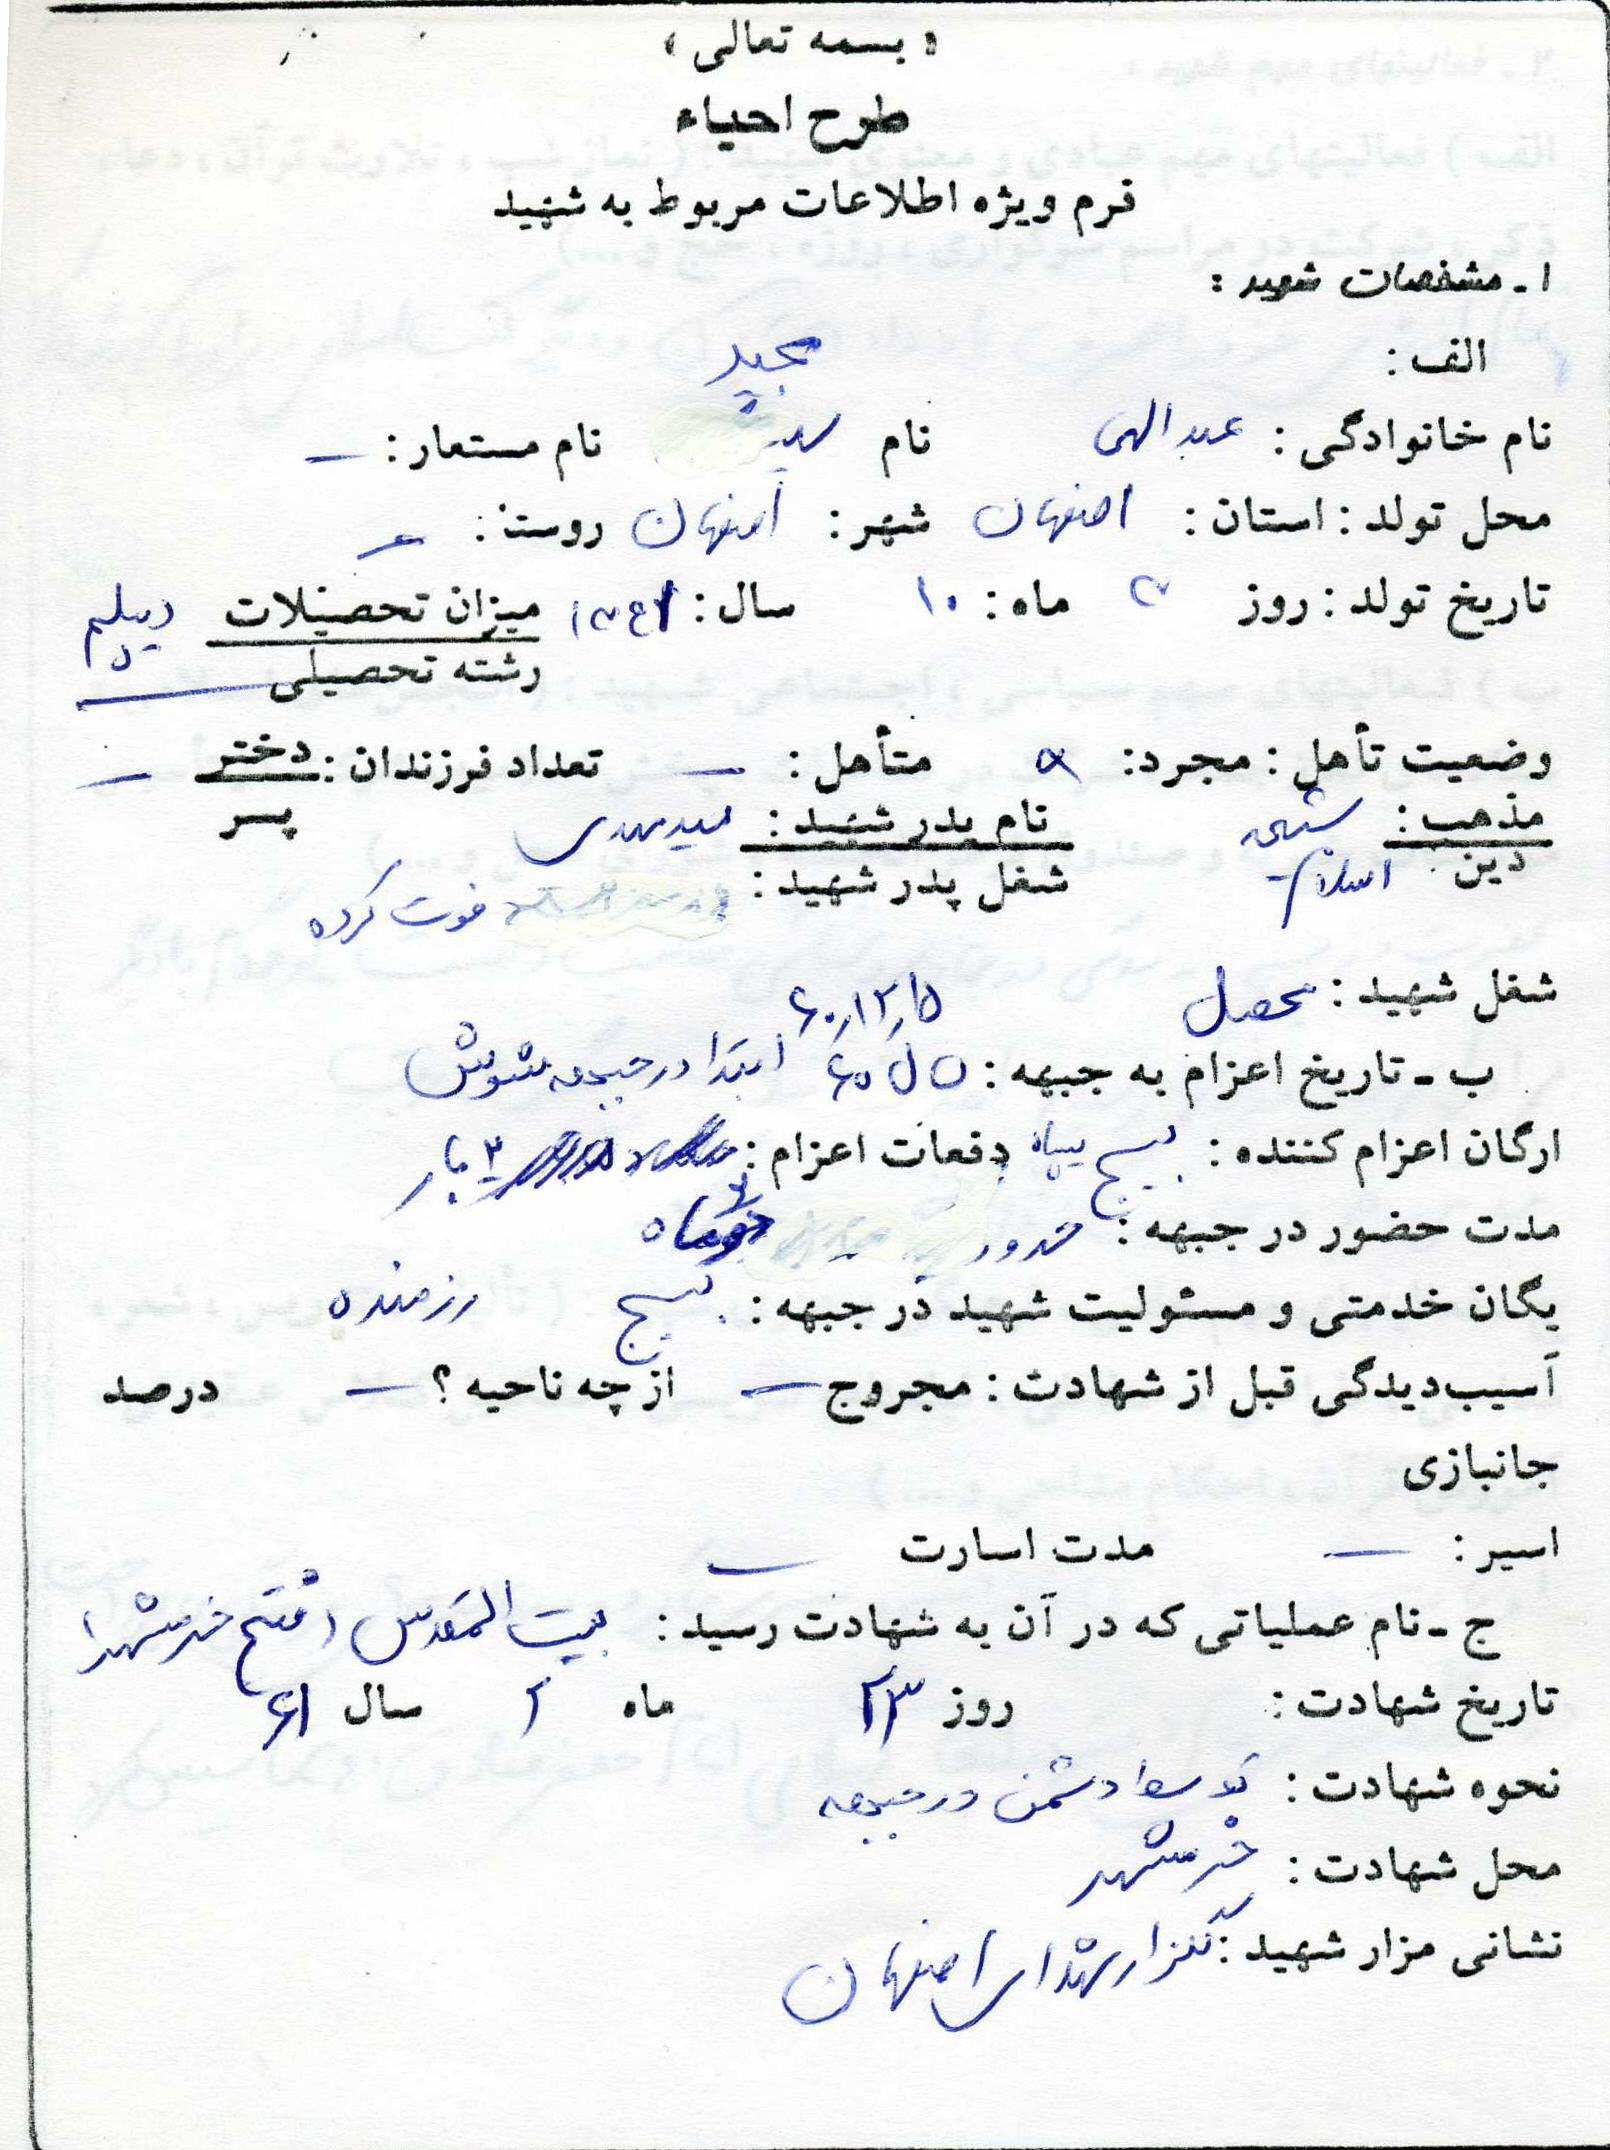 « بسمه تعالی »
طرح احیاء
فرم ویژه اطلاعات مربوط به شهید
۱ - مشخصات شهید :
الف :
مجید
نام خانوادگی : عبدالهی نام سید نام مستعار : —
محل تولد : استان : اصفهان شهر : اصفهان روستا : —
تاریخ تولد : روز ۳ ماه : ۱۰ سال : میزان تحصیلات دیپلم
رشته تحصیلی —
وضعیت تأهل : مجرد : متأهل : — تعداد فرزندان : دختر —
پسر
مذهب : شیعه نام پدر شهید : سیدمهدی
دین اسلام شغل پدر شهید : فوت کرده
شغل شهید : محصل
۶۰/۱۲/۵
ب - تاریخ اعزام به جبهه : سال ۶۰ ابتدا در جبهه شوش
ارگان اعزام کننده : بسیج سپاه دفعات اعزام : ۳ بار
مدت حضور در جبهه : حدود ماه
یگان خدمتی و مسئولیت شهید در جبهه : بسیج رزمنده
آسیب‌دیدگی قبل از شهادت : مجروح — از چه ناحیه ؟ — درصد
جانبازی
اسیر : — مدت اسارت —
ج - نام عملیاتی که در آن به شهادت رسید : بیت المقدس (فتح خرمشهر)
تاریخ شهادت : روز ۲۳ ماه ۲ سال ۶۱
نحوه شهادت : توسط دشمن در جبهه
محل شهادت : خرمشهر
نشانی مزار شهید : گلزار شهدای اصفهان